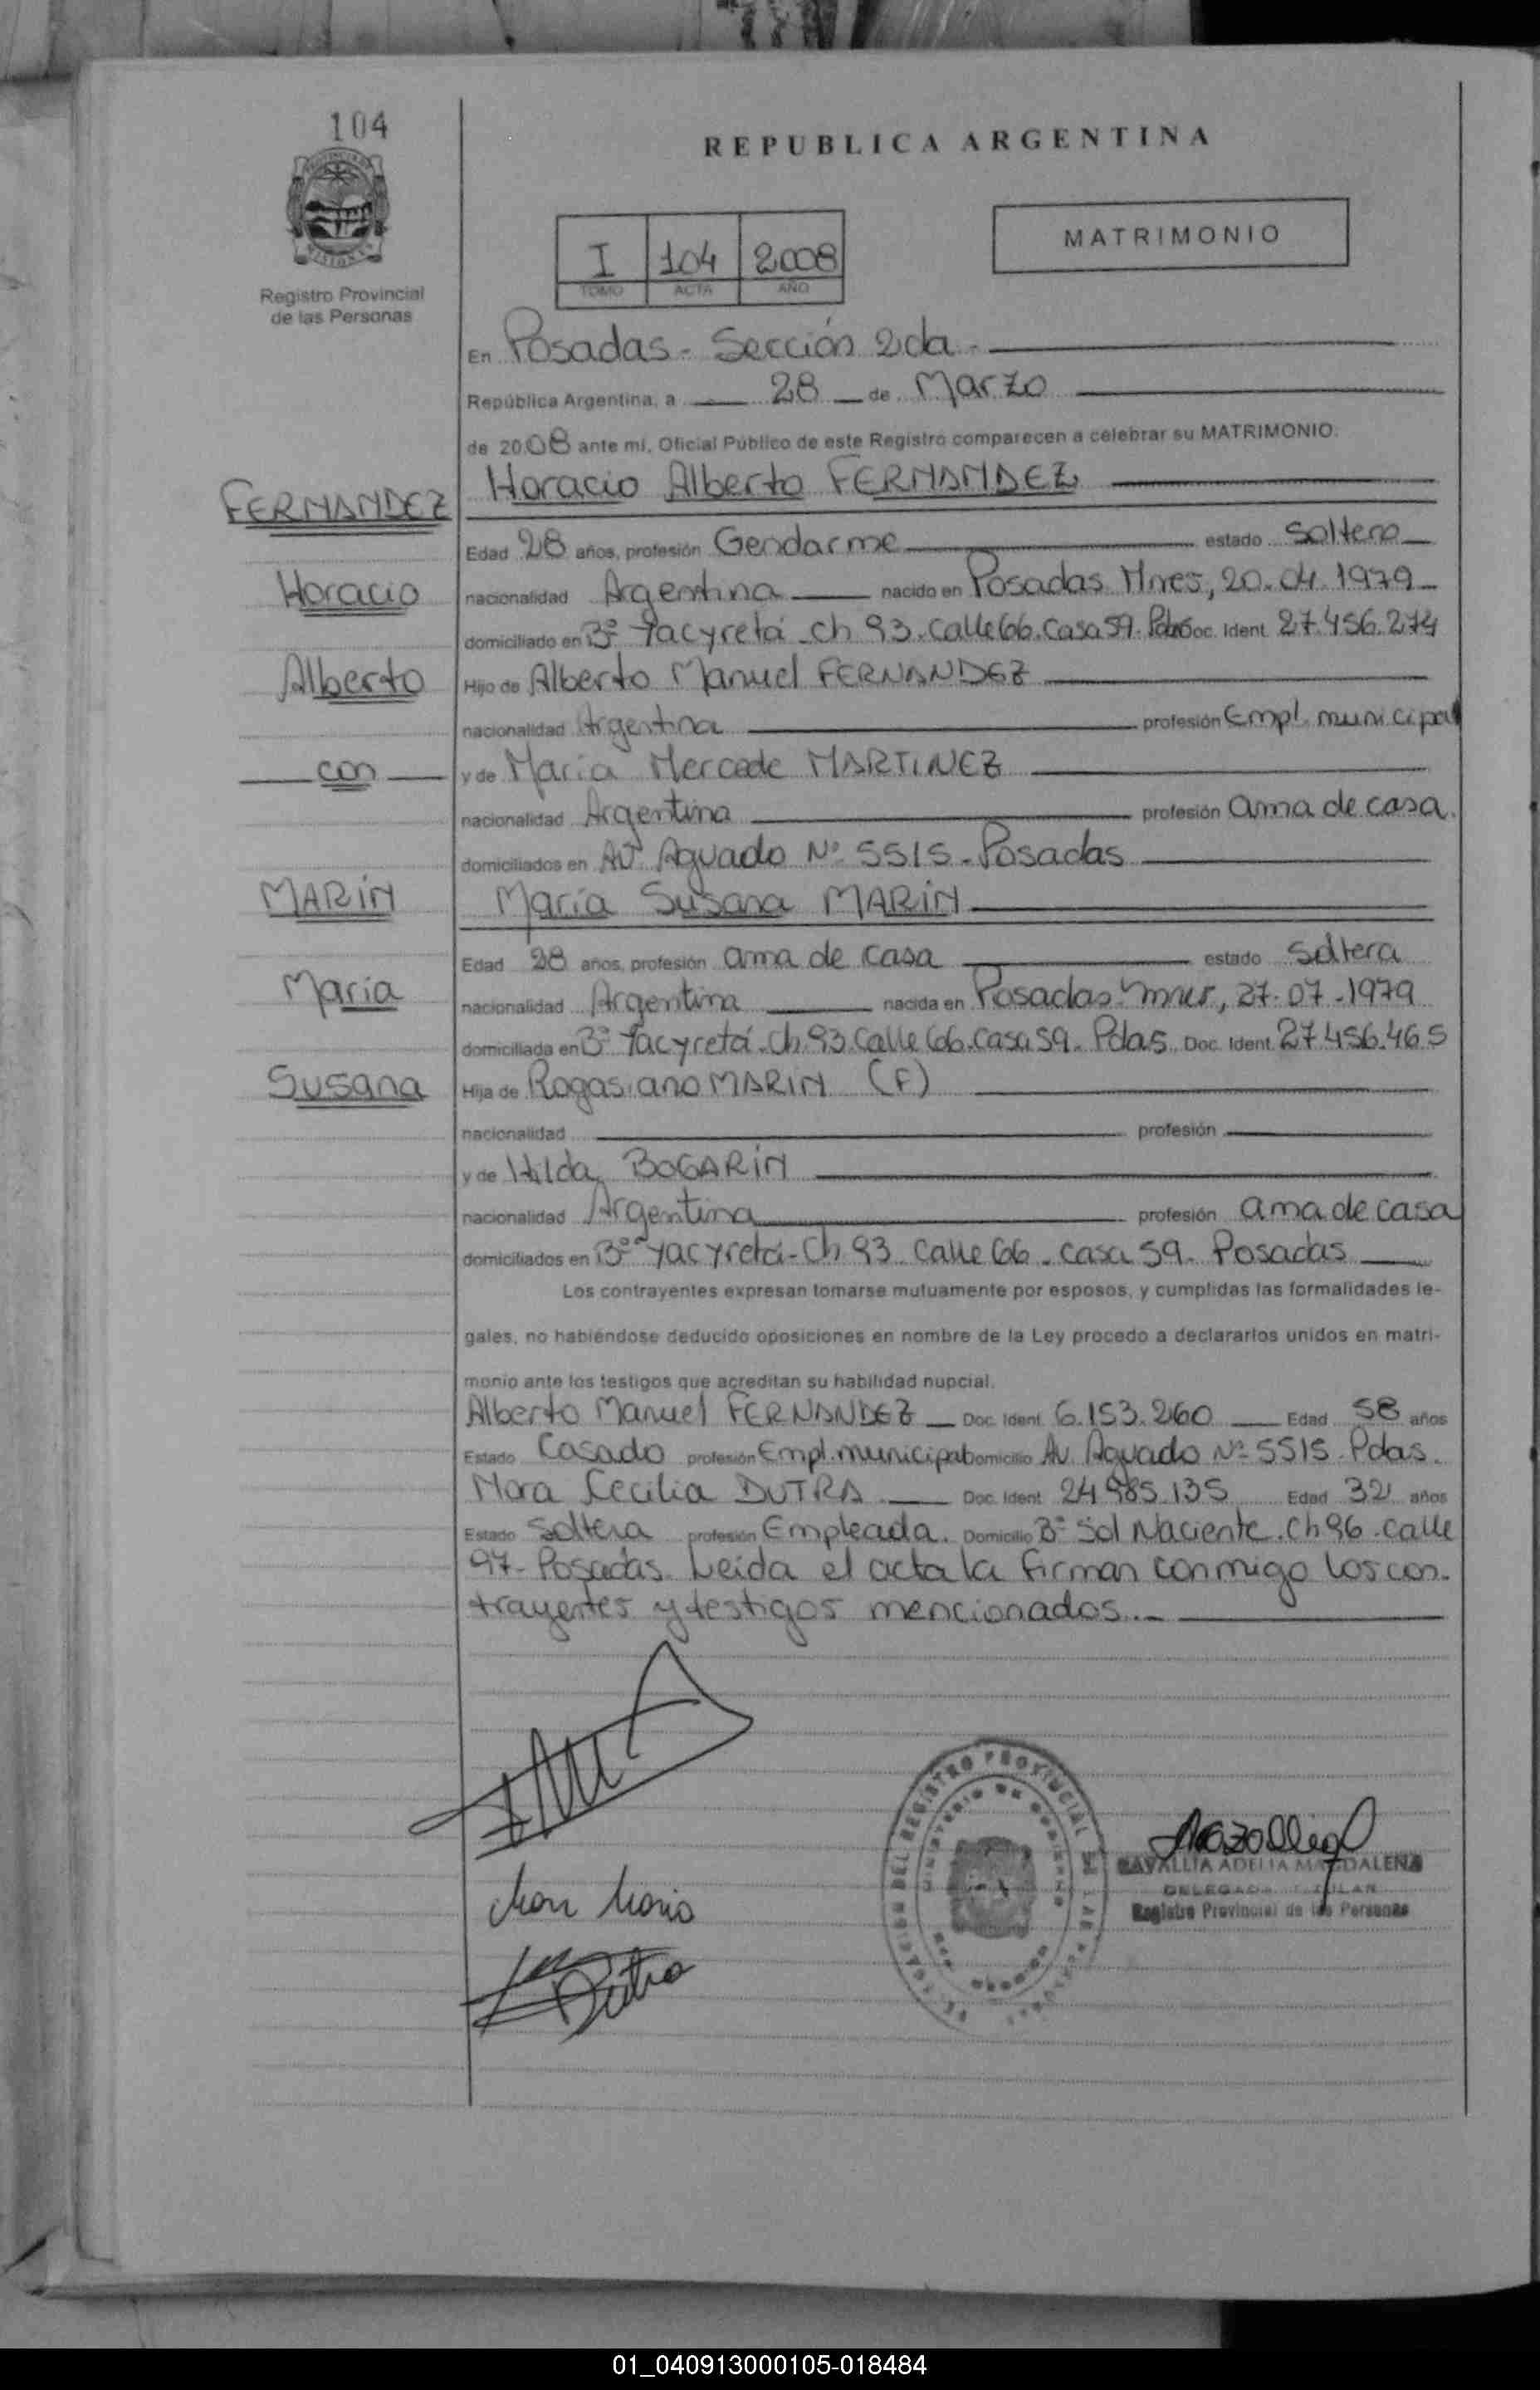 104
REPUBLICA ARGENTINA
MATRIMONIO
I 104 2008
TOMO ACTA AÑO
Registro Provincial
de las Personas
En Posadas - Sección 2da -
República Argentina, a 28 de Marzo
de 2008 ante mi, Oficial Público de este Registro comparecen a celebrar su MATRIMONIO.
Horacio Alberto FERNANDEZ
FERNANDEZ
Edad 28 años, profesión Gendarme estado Soltero
Horacio
nacionalidad Argentina nacido en Posadas Mnes, 20.04.1979
domiciliado en Bº Yacyretá Ch 93. Calle 66. Casa 59. Pdas Doc. Ident. 27.456.274
Alberto
Hijo de Alberto Manuel FERNANDEZ
nacionalidad Argentina profesión Empl. municipal
con
y de Maria Mercede MARTINEZ
nacionalidad Argentina profesión ama de casa.
domiciliados en Av. Aguado Nº 5515 - Posadas
MARíN
María Susana MARíN
Edad 28 años, profesión ama de casa estado Soltera
María
nacionalidad Argentina nacida en Posadas Mnes, 27.07.1979
domiciliada en Bº Yacyretá - Ch 93. Calle 66. Casa 59. Pdas. Doc. Ident. 27.456.465
Susana
Hija de Rogasiano MARIN (F)
nacionalidad profesión
y de Hilda BOGARíN
nacionalidad Argentina profesión ama de casa
domiciliados en Bº Yacyretá - Ch 93. Calle 66. casa 59. Posadas
Los contrayentes expresan tomarse mutuamente por esposos, y cumplidas las formalidades le-
gales, no habiéndose deducido oposiciones en nombre de la Ley procedo a declararlos unidos en matri-
monio ante los testigos que acreditan su habilidad nupcial.
Alberto Manuel FERNANDEZ Doc. Ident. 6.153.260 Edad 58 años
Estado Casado profesión Empl. municipal Domicilio Av. Aguado Nº 5515. Pdas.
Mora Cecilia DUTRA Doc. Ident. 24.985.135 Edad 32 años
Estado Soltera profesión Empleada. Domicilio Bº Sol Naciente. Ch 96. calle
97 - Posadas. Leida el acta la firman conmigo los con-
trayentes y testigos mencionados..
DEL REGISTRO PROVINCIAL DE LAS
CAVALLIA ADELIA MAGDALENA
DELEGADA TITULAR
Registro Provincial de las Personas
Dutra
01_040913000105-018484